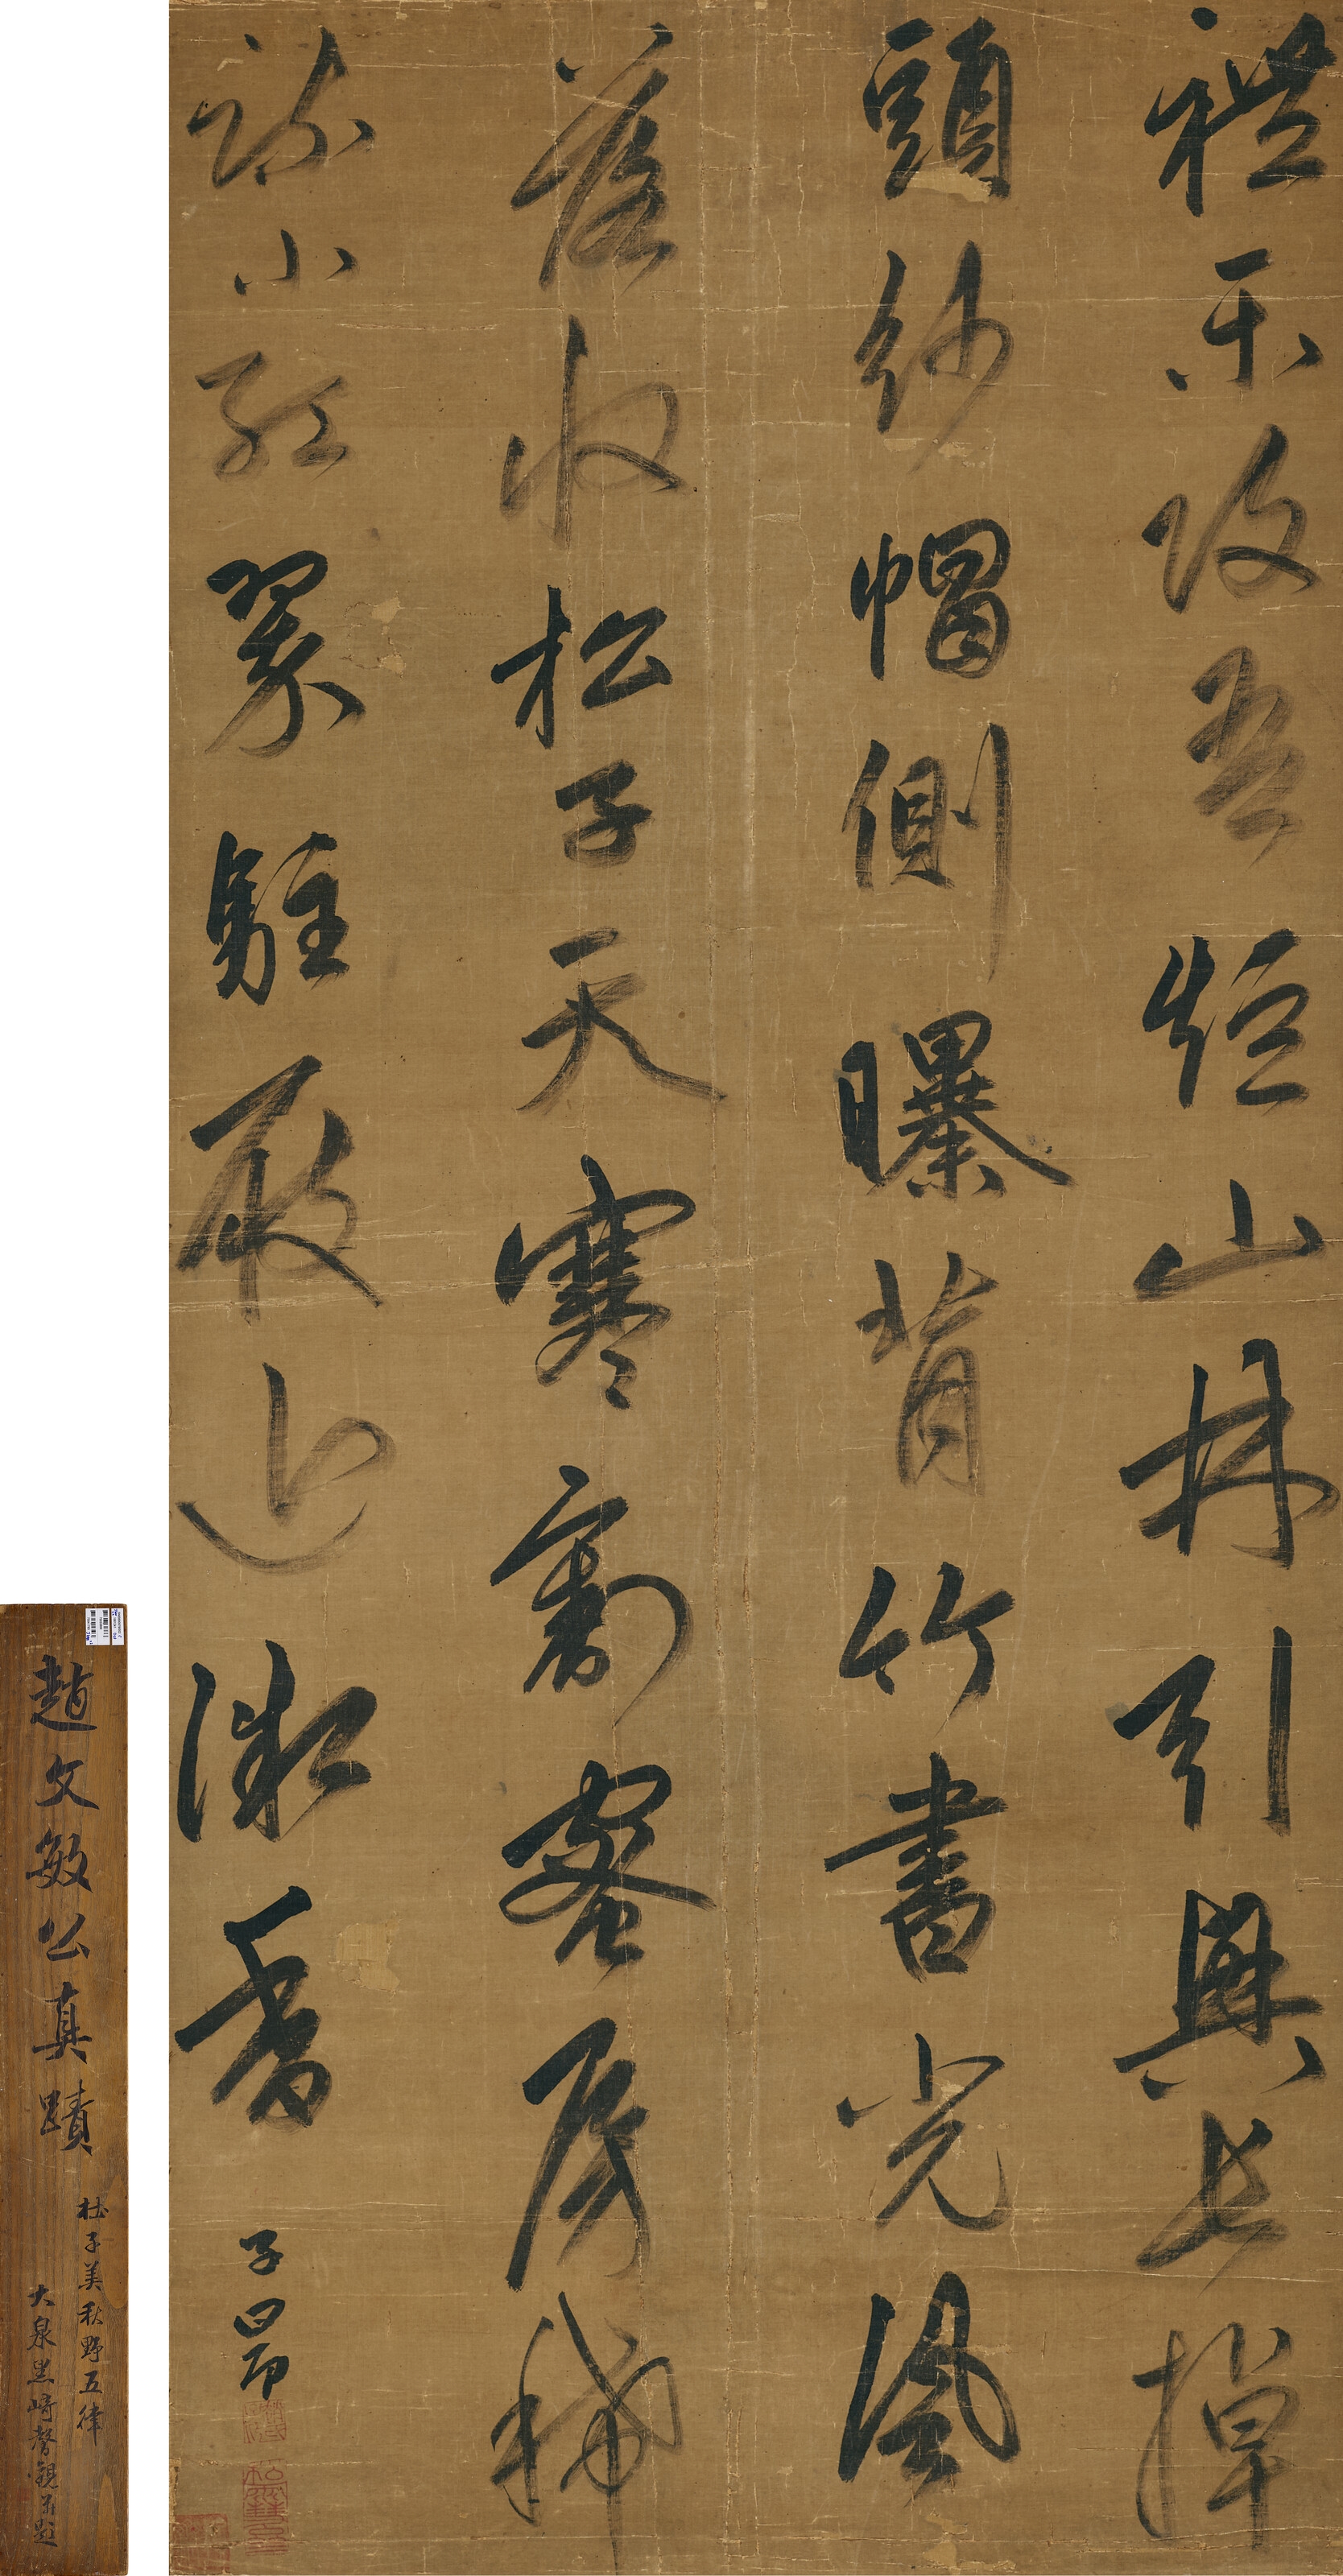 禮樂攻吾短山林引興長掉
頭紗帽側曝背竹書光風
落收松子天寒割蜜房稀
疎小紅翠駐屐近微香 子昂
趙文敏公真蹟
杜子美秋野五律
大泉黑崎馨觀並題